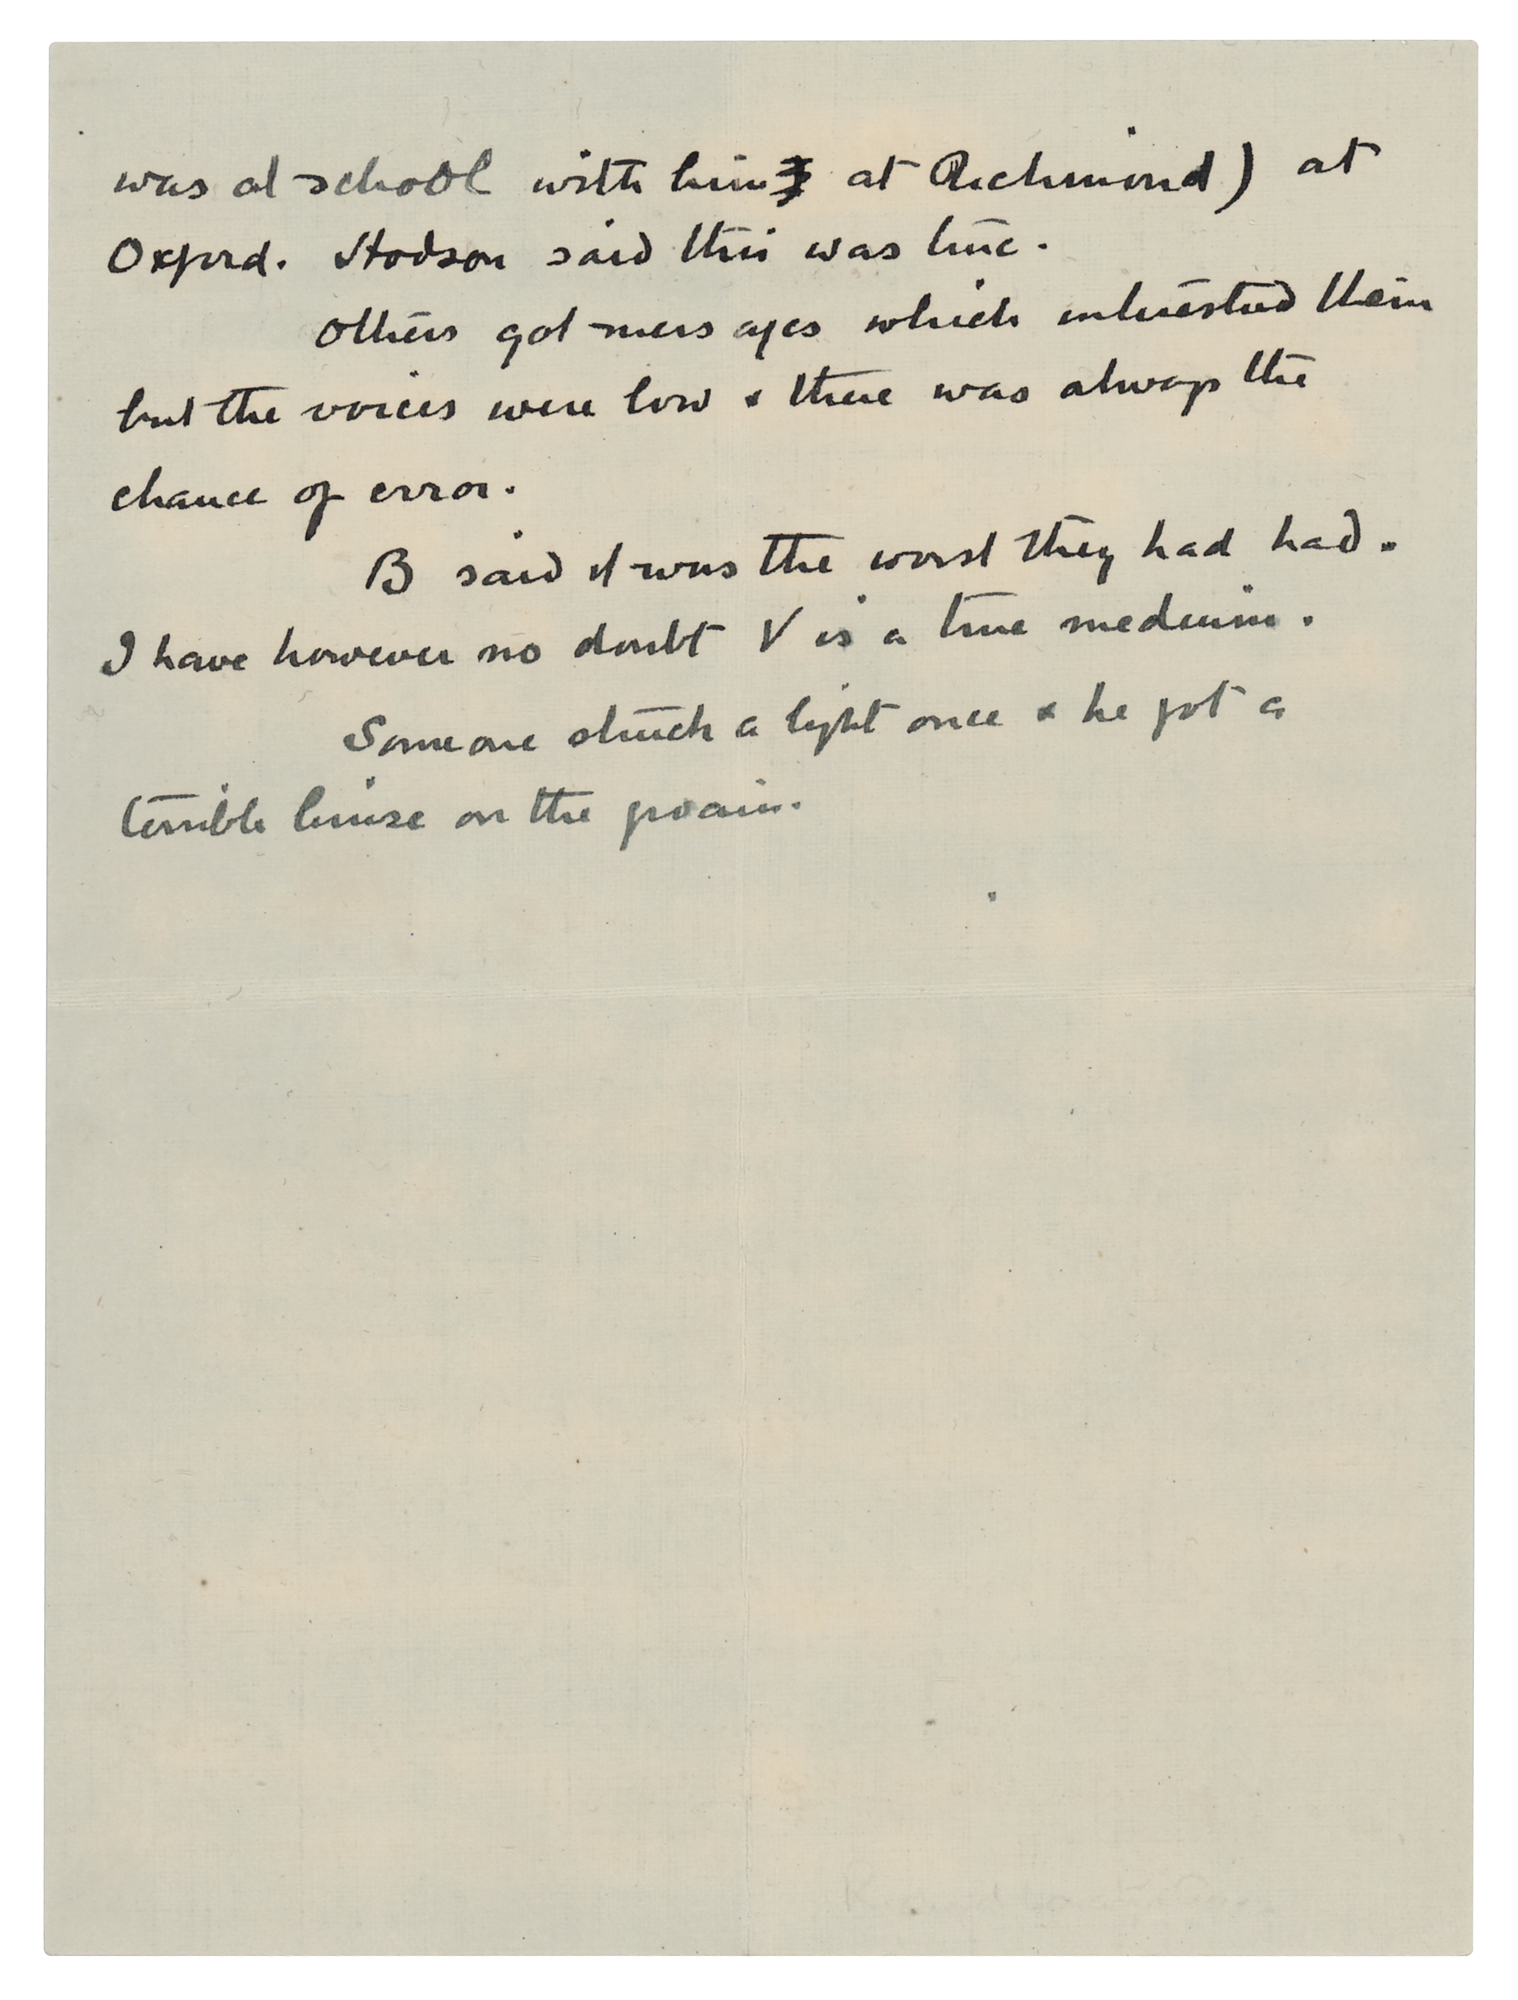 was at school with him at Richmond) at
Oxford. Hodson said this was true.
Others got messages which interested them
but the voices were low & there was always the
chance of error.
B said it was the worst they had had.
I have however no doubt V is a true medium.
Someone struck a light once & he got a
terrible bruise on the groin.